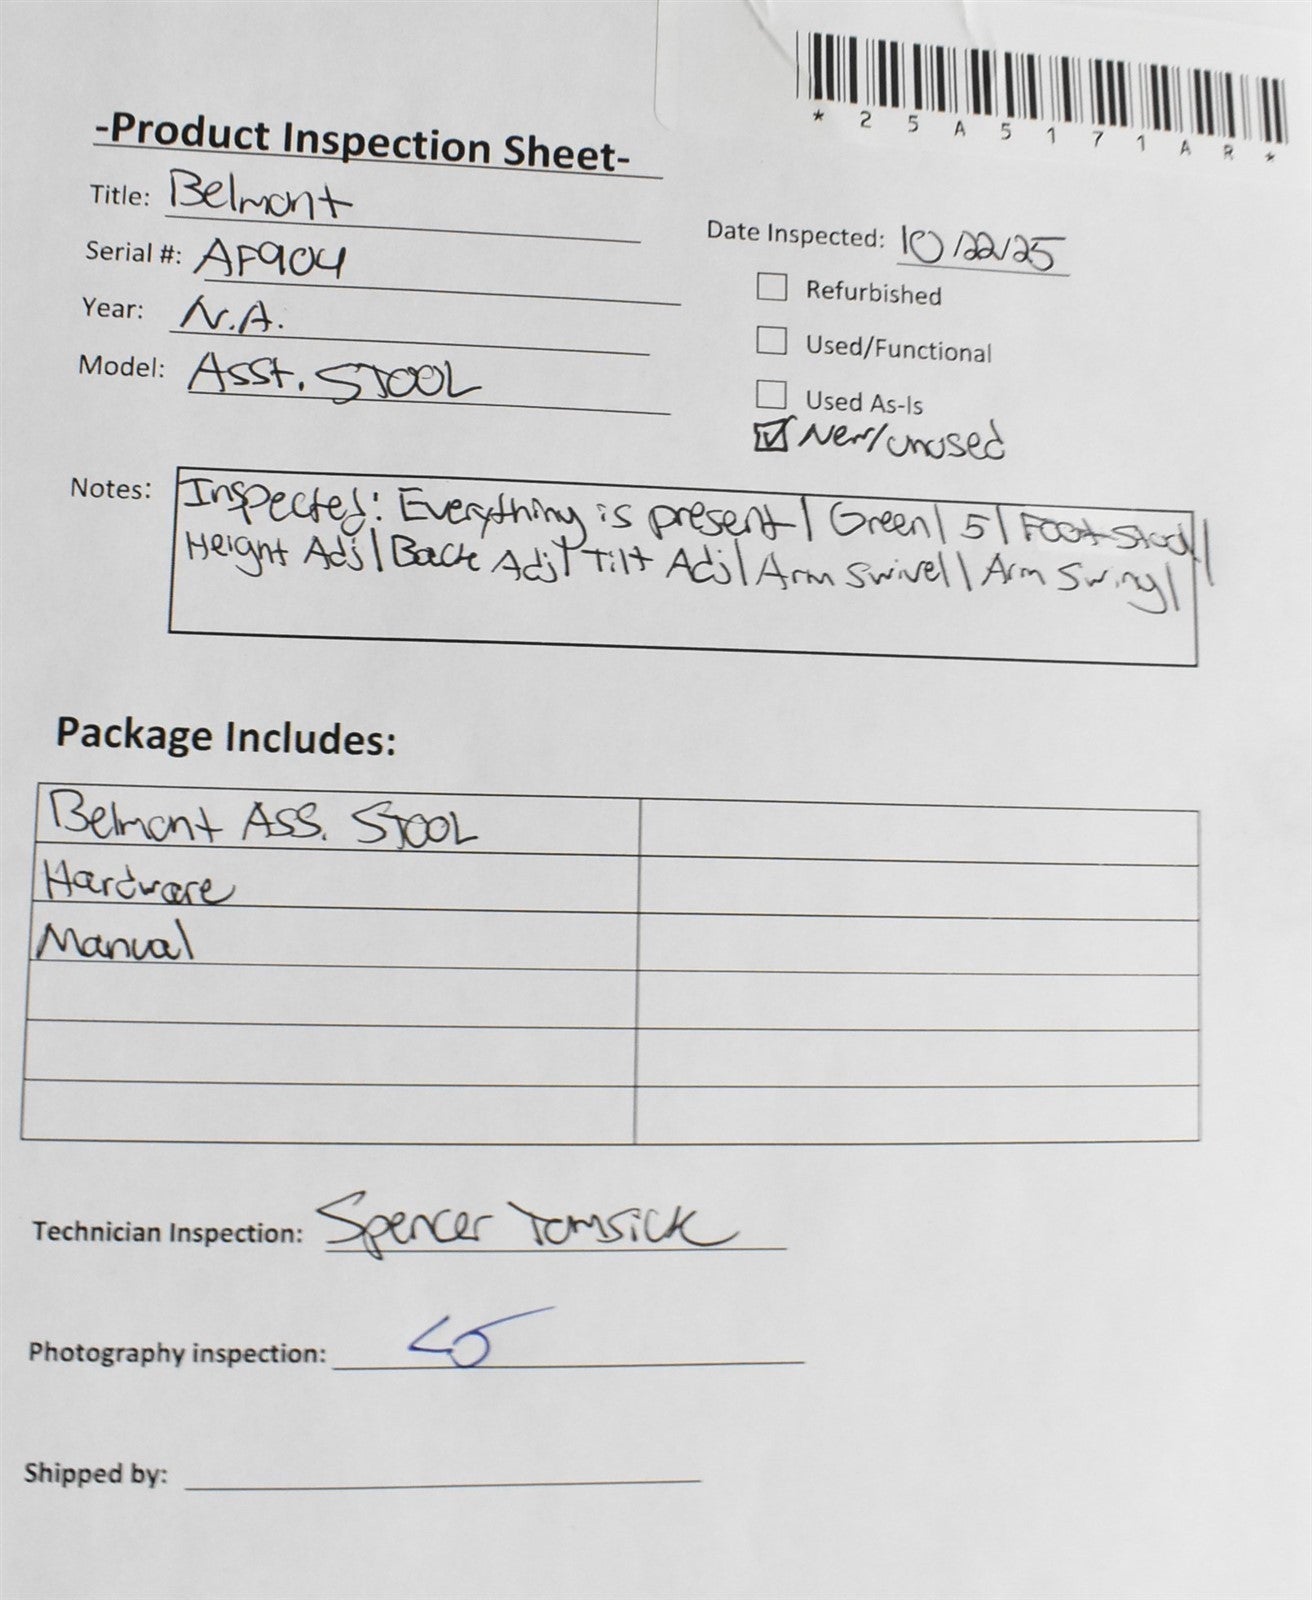 *25A5171AR*
-Product Inspection Sheet-
Title: Belmont
Serial #: AF904
Year: N.A.
Model: Asst. STOOL
Date Inspected: 10/22/25
Refurbished
Used/Functional
Used As-Is
New/unused
Notes: Inspected: Everything is present | Green | 5 | Foot Stool |
Height Adj | Back Adj | Tilt Adj | Arm Swivel | Arm Swing |
Package Includes:
Belmont ASS. STOOL
Hardware
Manual
Technician Inspection: Spencer Tomsick
Photography inspection:
Shipped by: